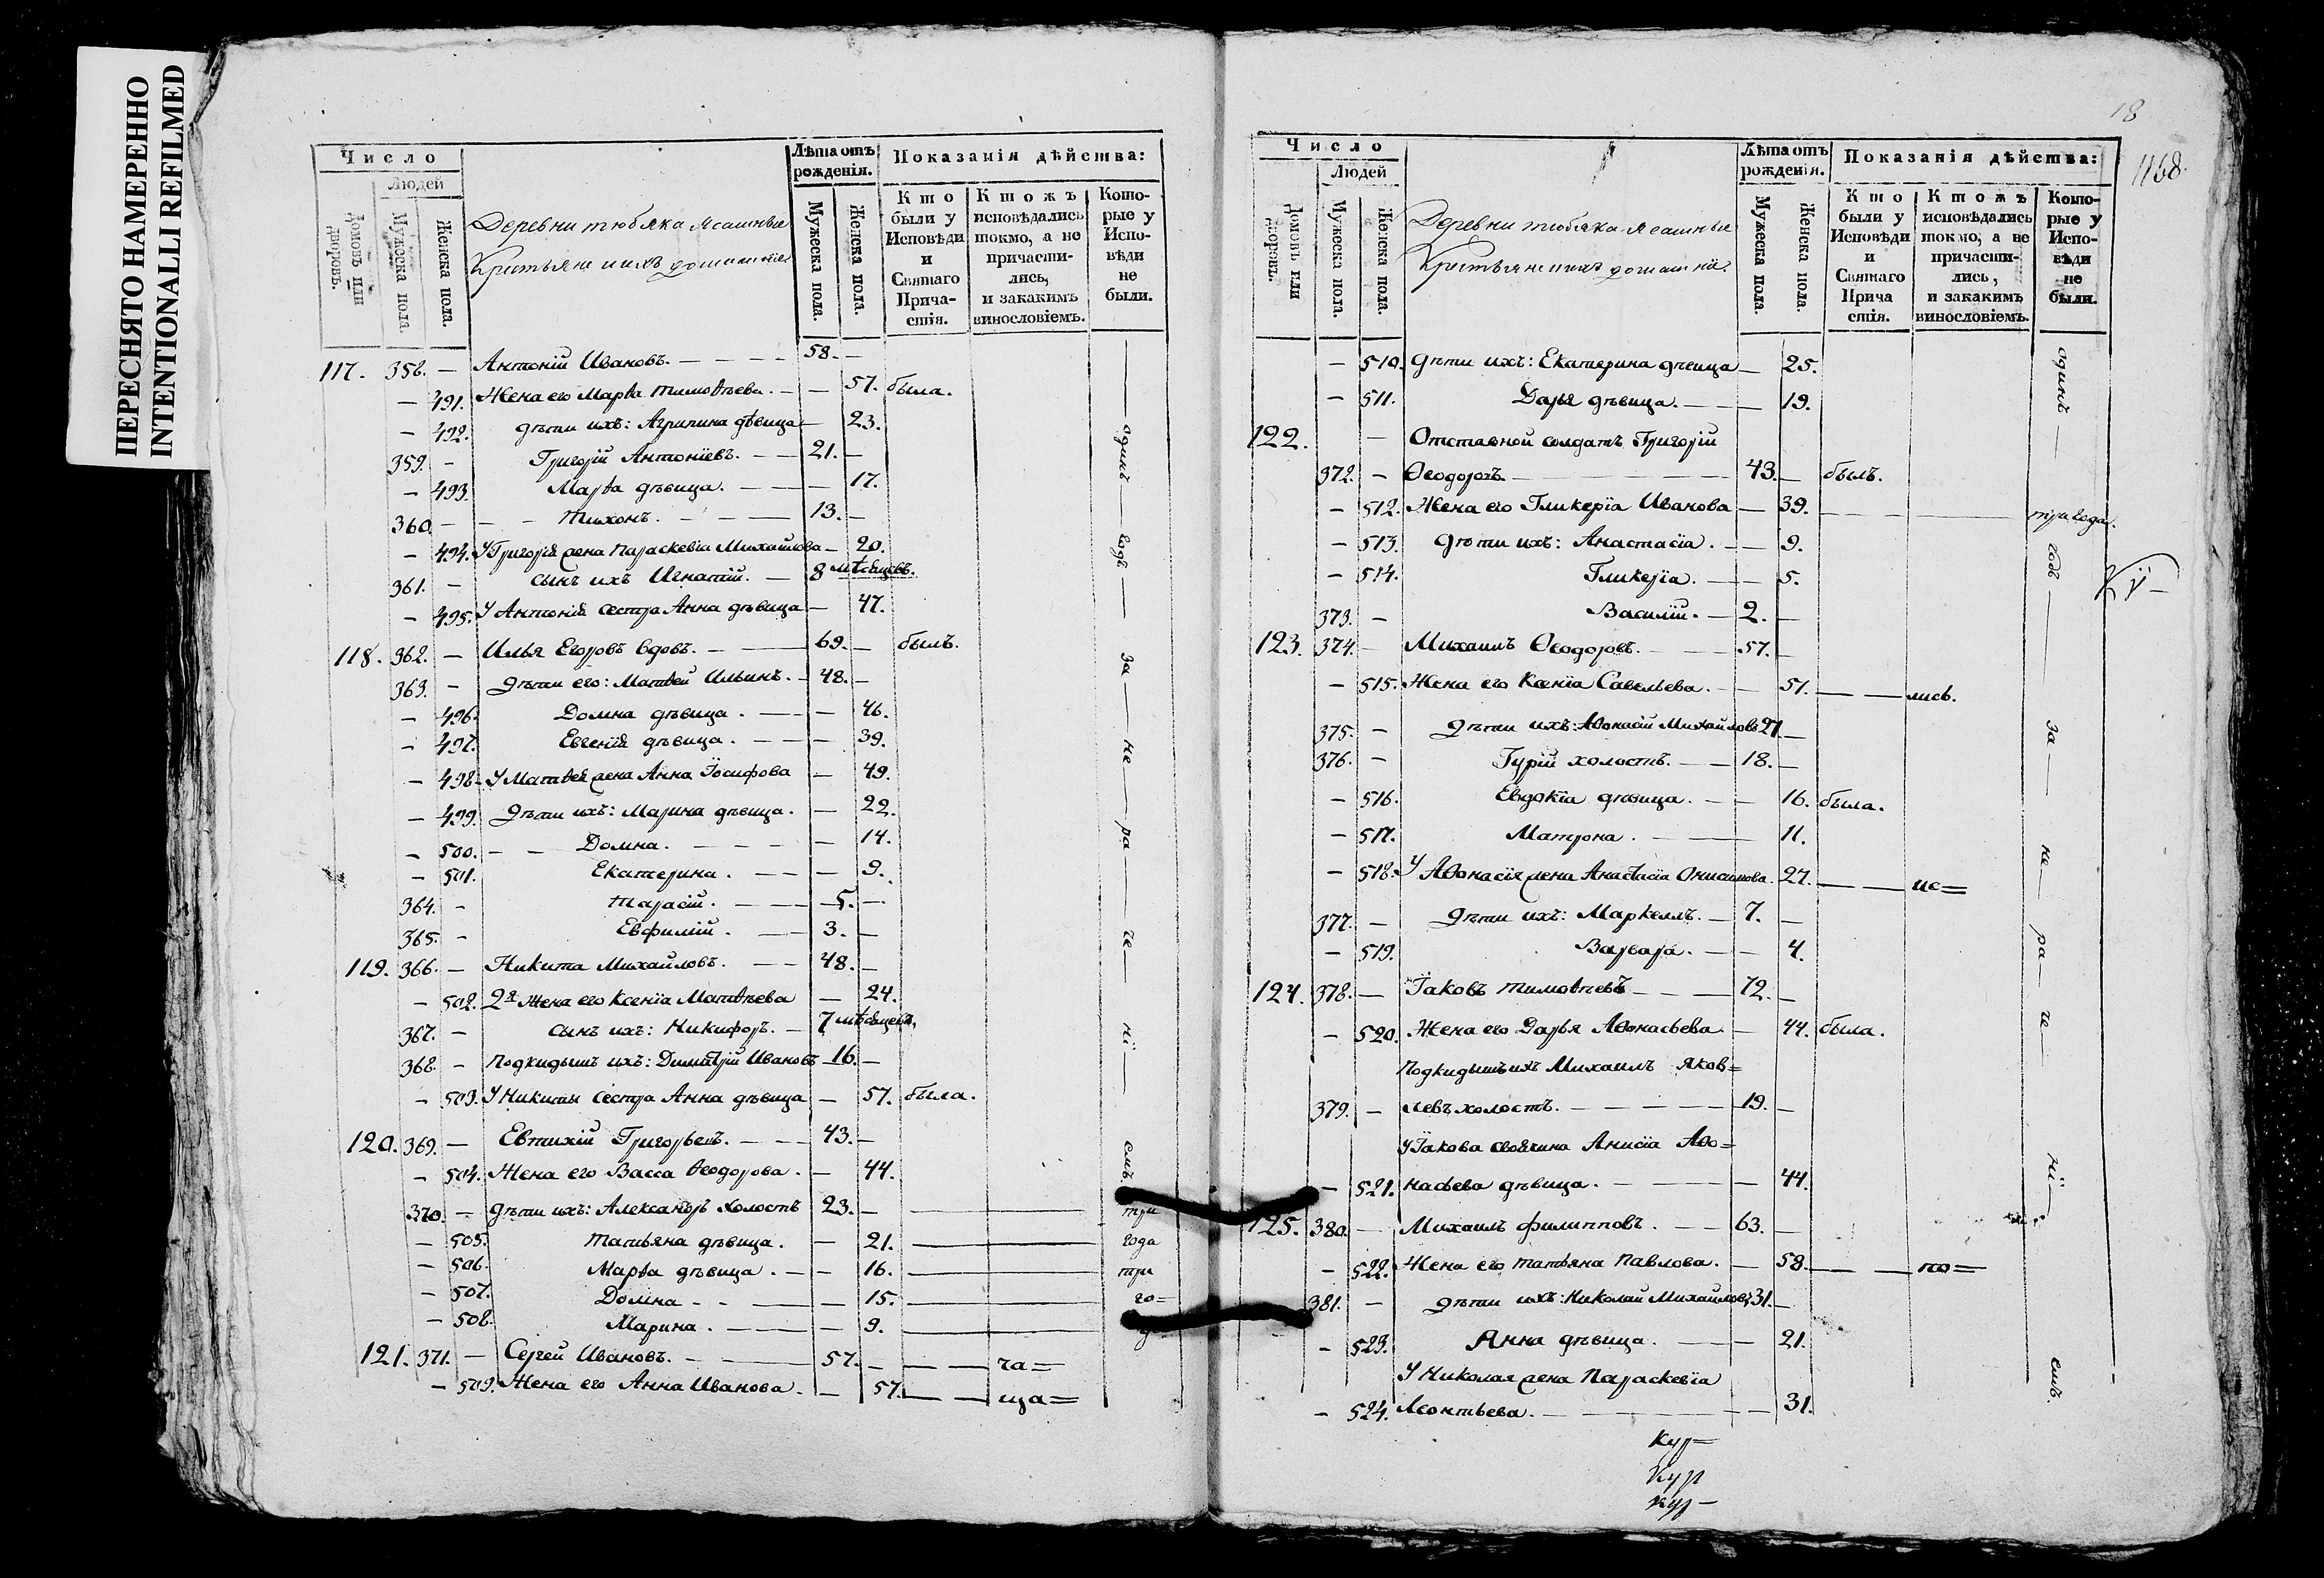 ПЕРЕСНЯТО НАМЕРЕННО
INTENTIONALLI REFILMED
Число
Людей
Домовъ или дворовъ.
Мужеска пола.
Женска пола.
Деревни тюбяка ясашные
Крестьяне и ихъ домашніе
Лѣта отъ рожденія.
Мужеска пола.
Женска пола.
Показанія дѣйства:
Кто были у Исповѣди и Святаго Причастія.
Ктожъ исповѣдались токмо, а не причастились, и закакимъ винословіемъ.
Которые у Исповѣди не были.
117. 358. — Антоній Ивановъ. — 58. —
— 491. Жена его Марѳа Тимоѳѣева. — 57. была.
— 492. дѣти ихъ: Агрипина дѣвица — 23.
359. — Григорій Антоніевъ. — 21. —
— 493. Марѳа дѣвица. — 17.
360. — Тихонъ. — 13. —
— 494. У Григорія жена Параскевіа Михайлова — 20.
361. — сынъ ихъ Игнатій. — 8 мѣсяцовъ.
— 495. У Антонія сестра Анна дѣвица — 47.
118. 362. — Илья Егоровъ вдовъ. — 69. — былъ.
363. — дѣти его: Матвей Ильинъ. — 48. —
— 496. Домна дѣвица. — 46.
— 497. Евгенія дѣвица. — 39.
— 498. У Матвея жена Анна Іосифова — 49.
— 499. дѣти ихъ: Марина дѣвица. — 22.
— 500. Домна. — 14.
— 501. Екатерина. — 9.
364. — Тарасій. — 5. —
365. — Евфимій. — 3. —
119. 366. — Никита Михайловъ. — 48. —
— 502. 2я жена его Ксенія Матвѣева — 24.
367. — сынъ ихъ: Никифоръ. — 7 мѣсяцевъ.
368. — подкидышъ ихъ: Димитрій Ивановъ 16. —
— 503. У Никиты сестра Анна дѣвица — 57. была.
120. 369. — Евтихій Григорьевъ. — 43. —
— 504. Жена его Васса Ѳеодорова. — 44.
370. — дѣти ихъ: Александръ холостъ 23. — три
— 505. Татьяна дѣвица. — 21. — года
— 506. Марѳа дѣвица. — 16. — три
— 507. Домна — 15. — го=
— 508. Марина. — 9. —
121. 371. — Сергей Ивановъ. — 57. — ча=
— 509. Жена его Анна Иванова. — 57. — ща=
одинъ — годъ — за — не — ра — че — ні — емъ
18
1168.
Число
Людей
Домовъ или дворовъ.
Мужеска пола.
Женска пола.
Деревни тюбяка ясашные
Крестьяне и ихъ домашніе.
Лѣта отъ рожденія.
Мужеска пола.
Женска пола.
Показанія дѣйства:
Кто были у Исповѣди и Святаго Причастія.
Ктожъ исповѣдались токмо, а не причастились, и закакимъ винословіемъ.
Которые у Исповѣди не были.
— 510. дѣти ихъ: Екатерина дѣвица — 25.
— 511. Дарья дѣвица. — 19.
122. — Отставной солдатъ Григорій
372. — Ѳеодоровъ. — 43. — былъ.
— 512. Жена его Гликеріа Иванова — 39. — три года.
— 513. дѣти ихъ: Анастасіа. — 9.
— 514. Гликеріа. — 5.
373. — Василій. — 2. —
123. 374. — Михаилъ Ѳеодоровъ. — 57. —
— 515. Жена его Ксенія Савельева. — 51. — лись.
375. — дѣти ихъ: Аѳонасій Михайловъ 27. —
376. — Гурій холостъ. — 18. —
— 516. Евдокіа дѣвица. — 16. была.
— 517. Матрона. — 11.
— 518. У Аѳонасія жена Анастасіа Онисимова. 27. — ис=
377. — дѣти ихъ: Маркеллъ. — 7. —
— 519. Варвара. — 4.
124. 378. — Іаковъ Тимоѳѣевъ — 72. —
— 520. Жена его Дарья Аѳонасьева. — 44. была.
подкидышъ ихъ Михаилъ Яков=
379. — левъ холостъ. — 19. —
У Іакова своячина Анисіа Аѳо=
— 521. насьева дѣвица. — 44.
125. 380. — Михаилъ Филипповъ. — 63. —
— 522. Жена его Татьяна Павлова. — 58. — по=
381. — дѣти ихъ: Николай Михайловъ 31. —
— 523. Анна дѣвица. — 21.
У Николая жена Параскевіа
— 524. Леонтьева. — 31.
одинъ — годъ — за — не — ра — че — ні — емъ.
Кур=
Кур
кур—